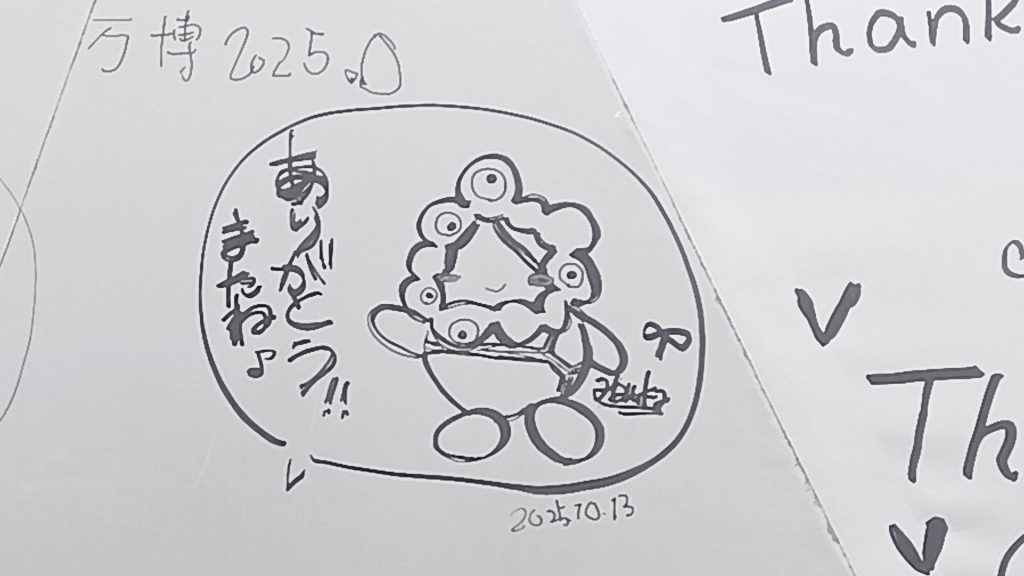 万博2025.0
ありがとう!!
またね♪
2025.10.13
Thank
Th